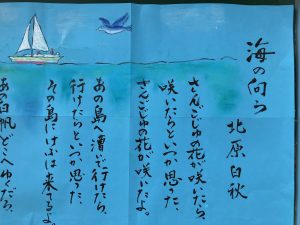 海の向う
北原白秋
さんごじゅの花が咲いたら、
咲いたらといつか思った、
さんごじゅの花が咲いたよ。
あの島へ漕いで行けたら、
行けたらといつか思った、
その島にけふは来てるよ。
あの白帆どこへゆくだろ、